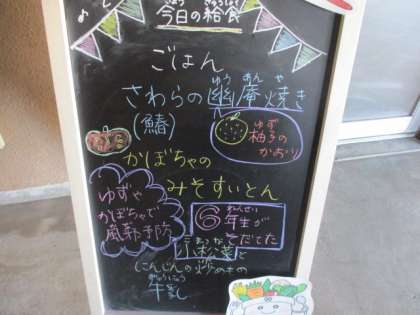 今日の給食
ごはん
さわらの幽庵焼き
ゆう あん や
(鰆)
ゆず
柚子の
かおり
かぼちゃの
みそすいとん
ゆずや
かぼちゃで
風邪予防
6年生が
ねんせい
そだてた
小松菜と
こまつな
にんじんの炒めもの
ぎゅうにゅう
牛乳